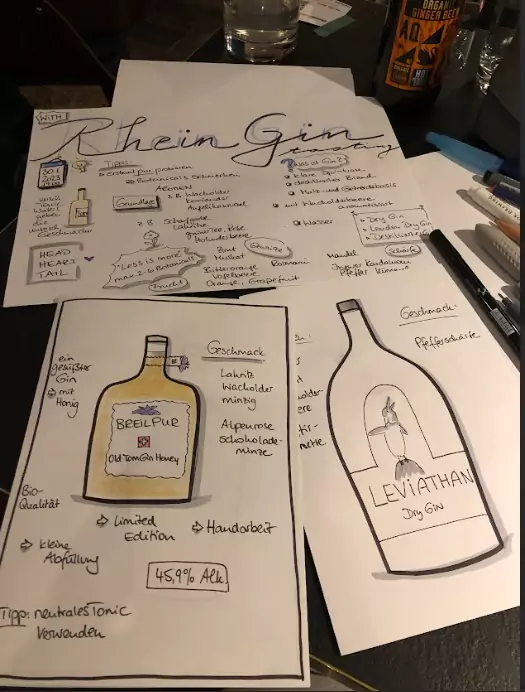 ORGANIC
GINGER BEER
WITH
Rhein Gin
tasting
Tipps:
erst pur probieren
Botanicals
Aromen
Grundlage
z.B. Wacholder
Koriander
Angelikawurzel
30.1
2023
z.B.
Holunderbeere
Zimt
Muskat
Gewürze
Rosmarin
Bitterorange
Orange, Grapefruit
Frucht
"Less is more"
max 2-6 Botanicals
HEAD
HEART
TAIL
Was ist Gin?
klare Spirituose
destillierter Brand
Mais und Getreidebasis
mit Wacholderbeere
aromatisiert
Wasser
Dry Gin
London Dry Gin
Destilled Gin
Mandel
Schärfe
Ingwer Kardamom
Pfeffer
ein
gesüßter
Gin
mit
Honig
BREILPUR
Old Tom Gin Honey
Geschmack
Lakritz
Wacholder
minzig
Alpenrose
schokolade-
minze
Bio-
Qualität
Limited
Edition
Handarbeit
kleine
Abfüllung
45,9% Alk
Tipp: neutrales Tonic
verwenden
Geschmack:
Pfefferschärfe
LEVIATHAN
Dry GIN